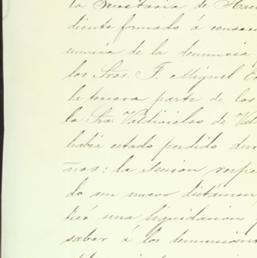 la Secretaria de Hac
diente formado á consec
uencia de la denuncia
los Sres. F. Miguel
la tercera parte de los
la Sra. Valdivieso de Val
haber estado perdido dur
ños: la Sesion
do un nuevo dictámen
tivó una liquidacion
saber á los denuncian